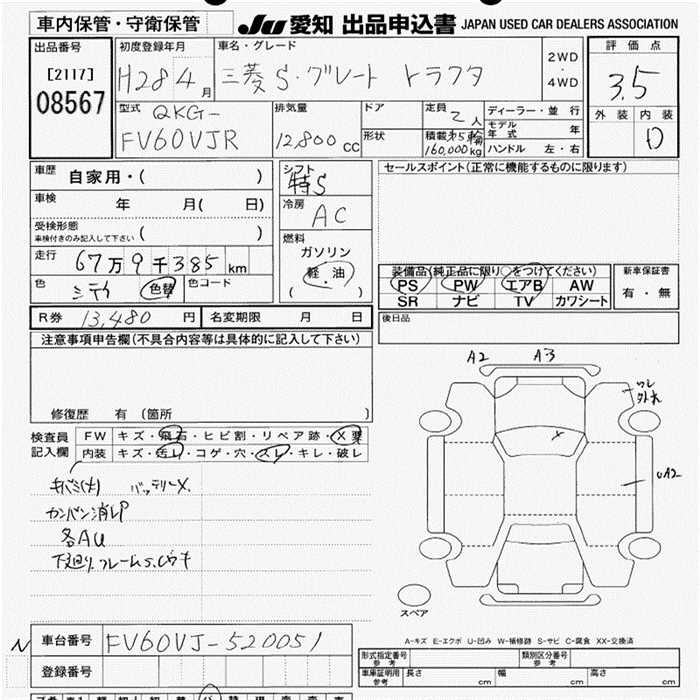 車内保管・守衛保管
JU 愛知 出品申込書 JAPAN USED CAR DEALERS ASSOCIATION
出品番号
[2117]
08567
初度登録年月
H28 4月
車名・グレード
三菱 S.グレート トラクタ
2WD
・
4WD
評価点
3.5
外装 内装
D
型式
QKG-
FV60VJR
排気量
12,800cc
ドア
形状
定員
2人
積載 第5輪
160,000kg
ディーラー・並行
モデル年式 年
ハンドル 左・右
車歴
自家用・( )
車検
年 月( 日)
受検形態
車検付きのみ記入して下さい ( )
走行
67万9千385km
色
シテイ 色替
色コード
シフト
特S
冷房
AC
燃料
ガソリン
軽・油
( )
セールスポイント(正常に機能するものに限ります)
装備品(純正品に限り○をつけてください)
PS PW エアB AW
SR ナビ TV カワシート
新車保証書
有・無
R券 13,480円
名変期限 月 日
後日品
注意事項申告欄(不具合内容等は具体的に記入して下さい)
修復歴 有 (箇所 )
検査員
記入欄
FW キズ・飛石・ヒビ割・リペア跡・X要
内装 キズ・汚レ・コゲ・穴・スレ・キレ・破レ
キバミ(大) バッテリーX.
カンバン消しP
各AU
下廻り.フレームS.Cウキ
A2 A3
ワレ
外れ
X
UA2
スペア
A-キズ E-エクボ U-凹み W-補修跡 S-サビ C-腐食 XX-交換済
N
車台番号 FV60VJ-520051
登録番号
形式指定番号
参考
類別区分番号
参考
車庫証明用
参考
長さ cm 幅 cm 高さ cm